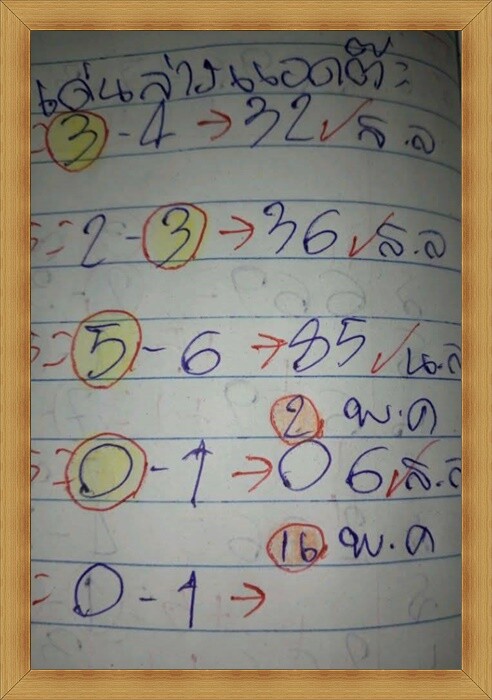 เด่นล่างนอดตี๊ะ
= 3 - 4 → 32 ✓ ส.ล
= 2 - 3 → 36 ✓ ส.ล
= 5 - 6 → 85 ✓ น.ล
2 พ.ค
= 0 - 1 → 06 ✓ ส.ล
16 พ.ค
= 0 - 1 →